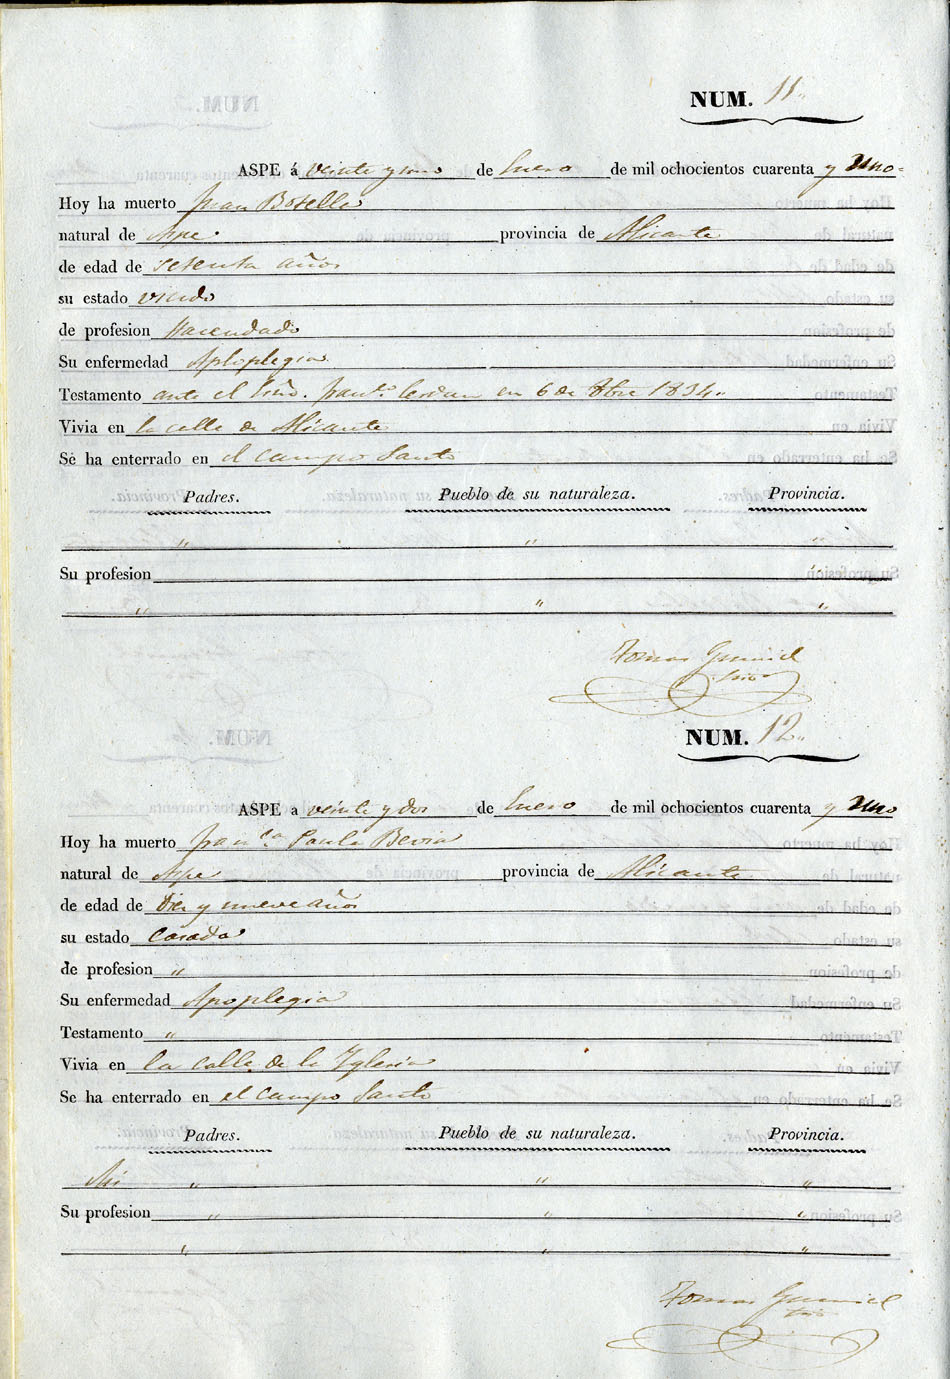 NUM. 11.
ASPE á veinte y uno de Enero de mil ochocientos cuarenta y uno
Hoy ha muerto Juan Botella
natural de Aspe provincia de Alicante
de edad de setenta años
su estado viudo
de profesion Hacendado
Su enfermedad Aploplegia
Testamento ante el en 6 de 8bre 1834.
Vivia en la calle de Alicante
Se ha enterrado en el campo Santo
Padres. Pueblo de su naturaleza. Provincia.
" " "
Su profesion "
" " "
Tomas
NUM. 12.
ASPE a veinte y dos de Enero de mil ochocientos cuarenta y uno
Hoy ha muerto Fran.ca Paula Bevia
natural de Aspe provincia de Alicante
de edad de Diez y nueve años
su estado casada
de profesion "
Su enfermedad Apoplegia
Testamento "
Vivia en la calle de la Yglesia
Se ha enterrado en el campo Santo
Padres. Pueblo de su naturaleza. Provincia.
" " "
Su profesion " " "
" " "
Tomas